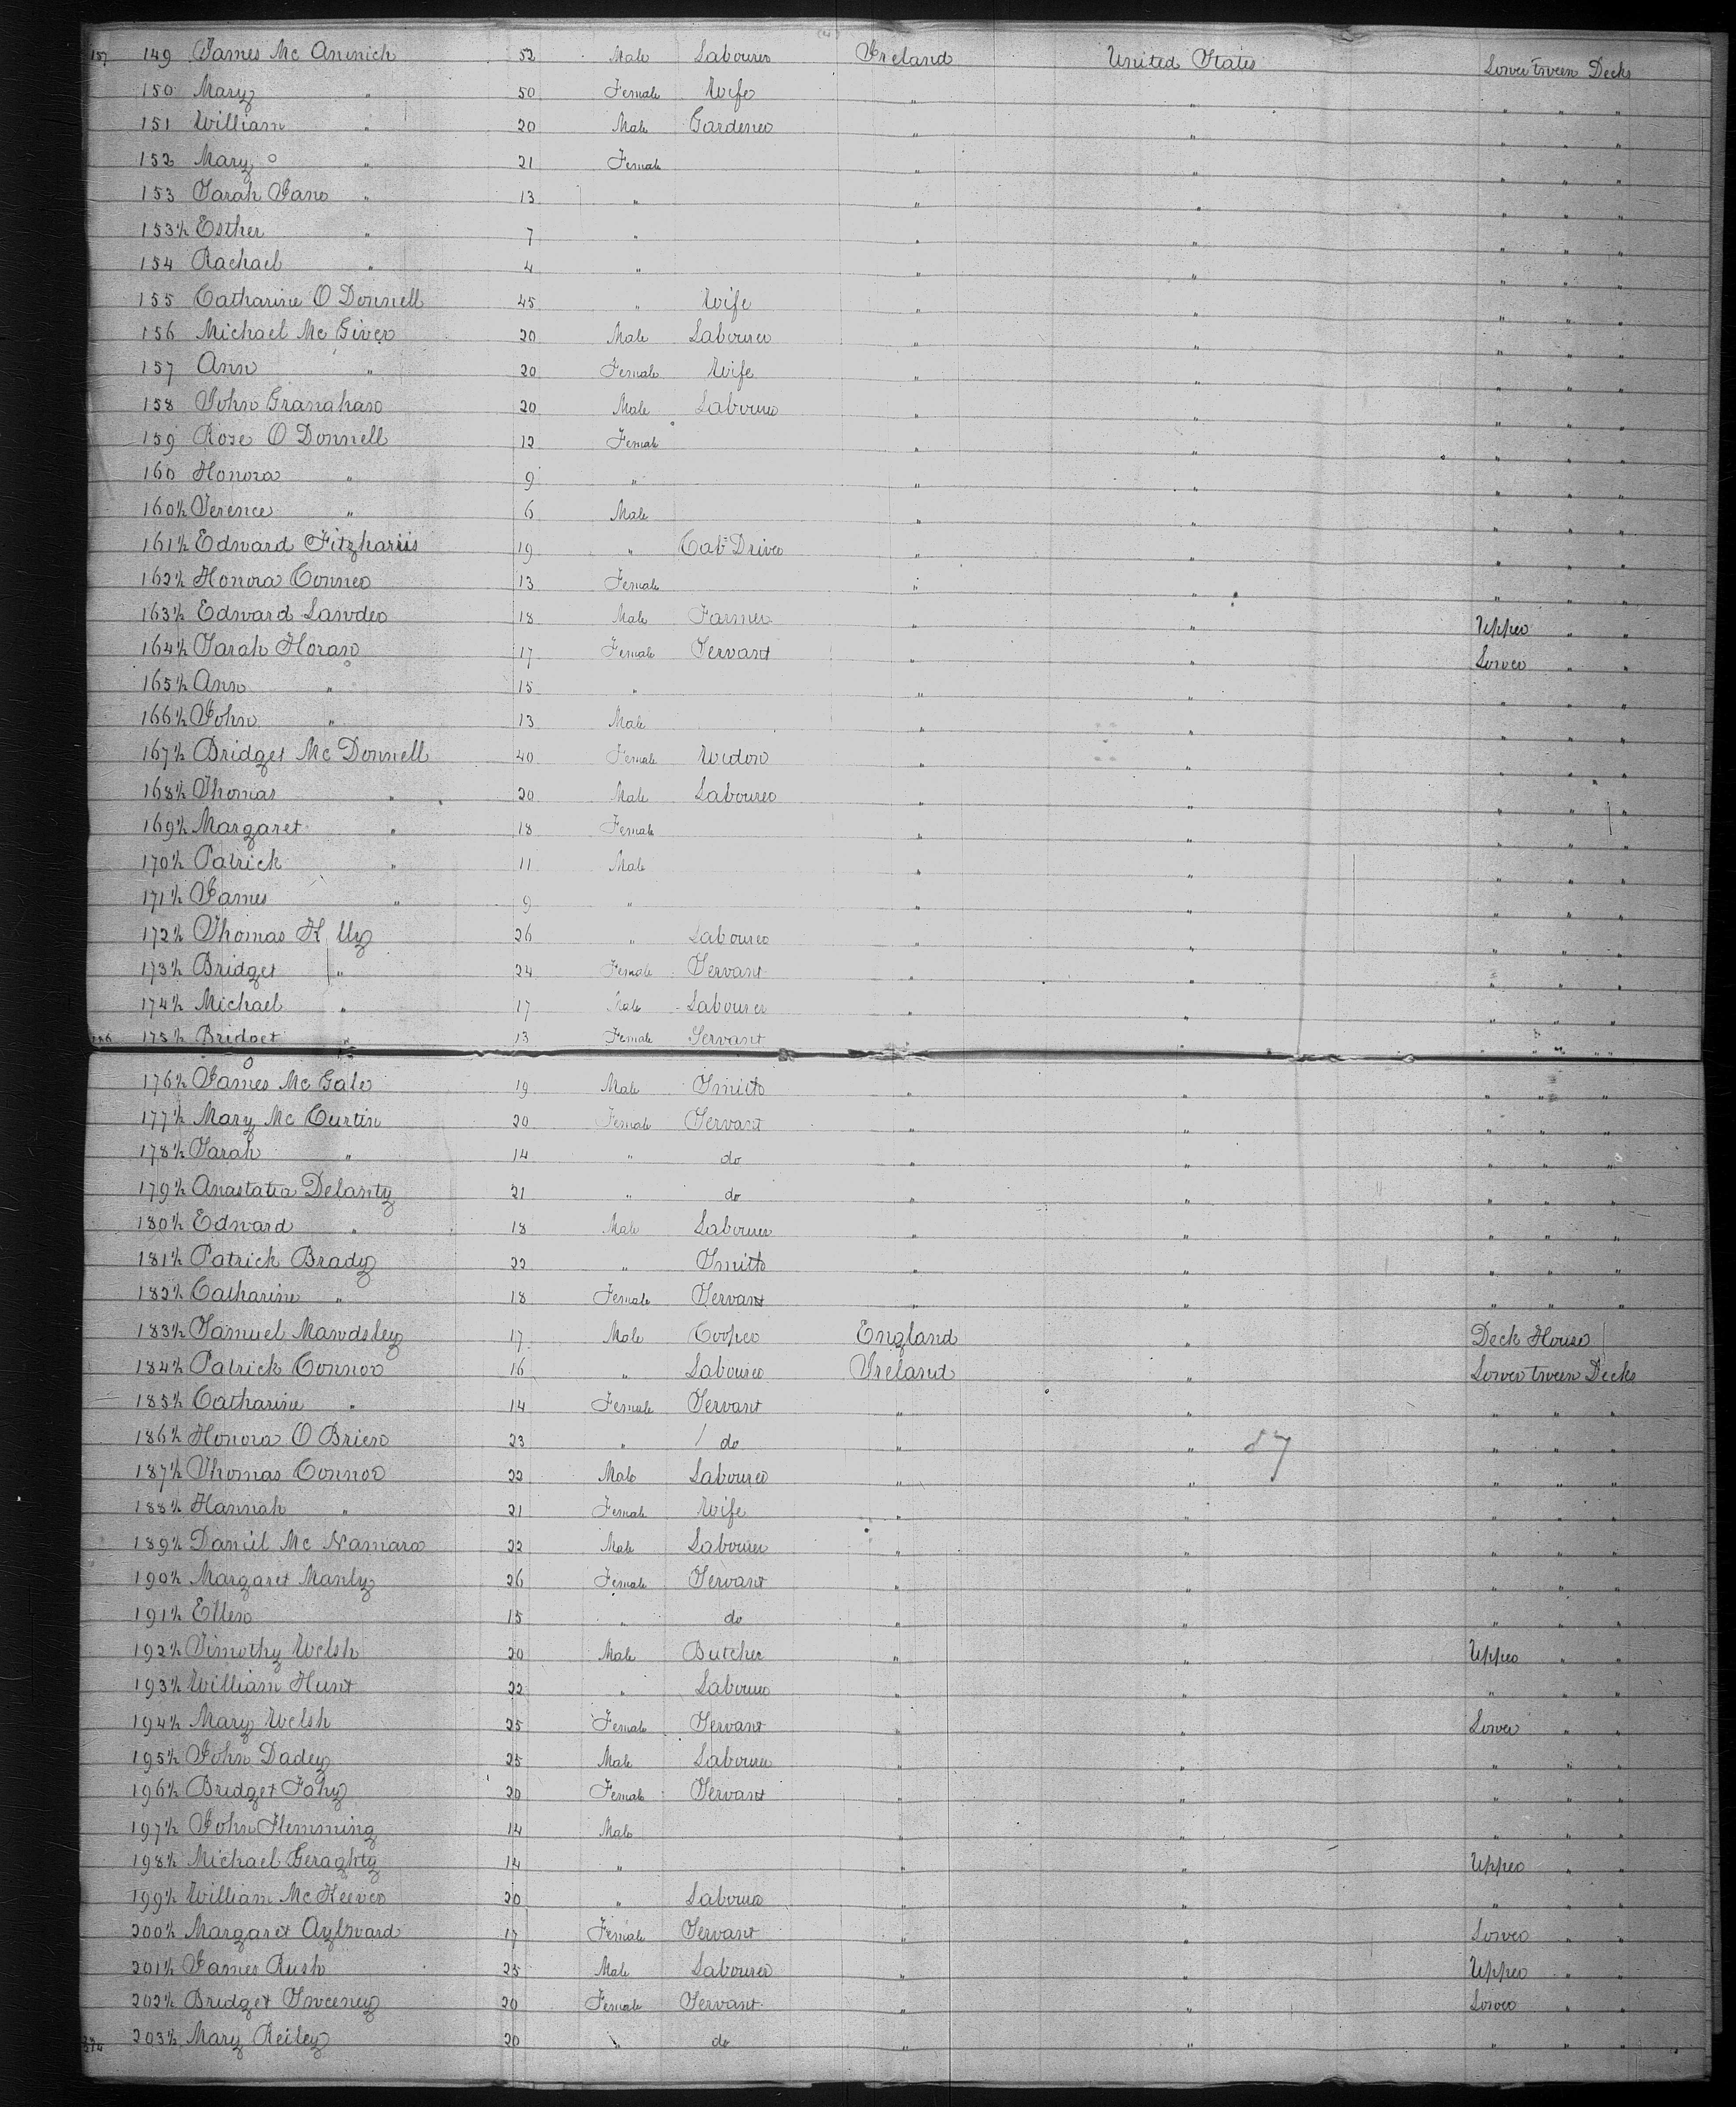 157 149 James Mc Aninich 52 Male Labourer Ireland United States Lower tween Decks
150 Mary " 50 Female Wife " " " " "
151 William " 20 Male Gardener " " " " "
152 Mary " 21 Female " " " " "
153 Sarah Jane " 13 " " " " " "
153½ Esther " 7 " " " " " "
154 Rachael " 4 " " " " " "
155 Catharine O Donnell 45 " Wife " " " " "
156 Michael Mc Giver 20 Male Labourer " " " " "
157 Ann " 20 Female Wife " " " " "
158 John Granahan 20 Male Labourer " " " " "
159 Rose O Donnell 12 Female " " " " "
160 Honora " 9 " " " " " "
160½ Terence " 6 Male " " " " "
161½ Edward Fitzharris 19 " Cab Driver " " " " "
162½ Honora Conner 13 Female " " " " "
163½ Edward Lawder 18 Male Farmer " " Upper " "
164½ Sarah Horan 17 Female Servant " " Lower " "
165½ Ann " 15 " " " " " "
166½ John " 13 Male " " " " "
167½ Bridget Mc Donnell 40 Female Widow " " " " "
168½ Thomas " 20 Male Labourer " " " " "
169½ Margaret " 18 Female " " " " "
170½ Patrick " 11 Male " " " " "
171½ James " 9 " " " " " "
172½ Thomas K lly 26 " Labourer " " " " "
173½ Bridget " 24 Female Servant " " " " "
174½ Michael " 17 Male Labourer " " " " "
175½ Bridget " 13 Female Servant " " " " "
176½ James Mc Gale 19 Male Smith " " " " "
177½ Mary Mc Curtin 20 Female Servant " " " " "
178½ Sarah " 14 " do " " " " "
179½ Anastatia Delanty 21 " do " " " " "
180½ Edward " 18 Male Labourer " " " " "
181½ Patrick Brady 22 " Smith " " " " "
182½ Catharine " 18 Female Servant " " " " "
183½ Samuel Mawdsley 17 Male Cooper England " Deck House
184½ Patrick Connor 16 " Labourer Ireland " Lower tween Decks
185½ Catharine " 14 Female Servant " " " " "
186½ Honora O Brien 23 " do " " 57 " " "
187½ Thomas Connor 22 Male Labourer " " " " "
188½ Hannah " 21 Female Wife " " " " "
189½ Daniel Mc Namara 22 Male Labourer " " " " "
190½ Margaret Manly 26 Female Servant " " " " "
191½ Ellen 15 " do " " " " "
192½ Timothy Welsh 20 Male Butcher " " Upper " "
193½ William Hunt 22 " Labourer " " " " "
194½ Mary Welsh 25 Female Servant " " Lower " "
195½ John Dadey 25 Male Labourer " " " " "
196½ Bridget Fahy 20 Female Servant " " " " "
197½ John Flemming 14 Male " " " " "
198½ Michael Geraghty 14 " " " Upper " "
199½ William Mc Keever 20 " Labourer " " " " "
200½ Margaret Aylward 17 Female Servant " " Lower " "
201½ James Rush 25 Male Labourer " " Upper " "
202½ Bridget Sweeney 20 Female Servant " " Lower " "
203½ Mary Reiley 20 " do " " " " "